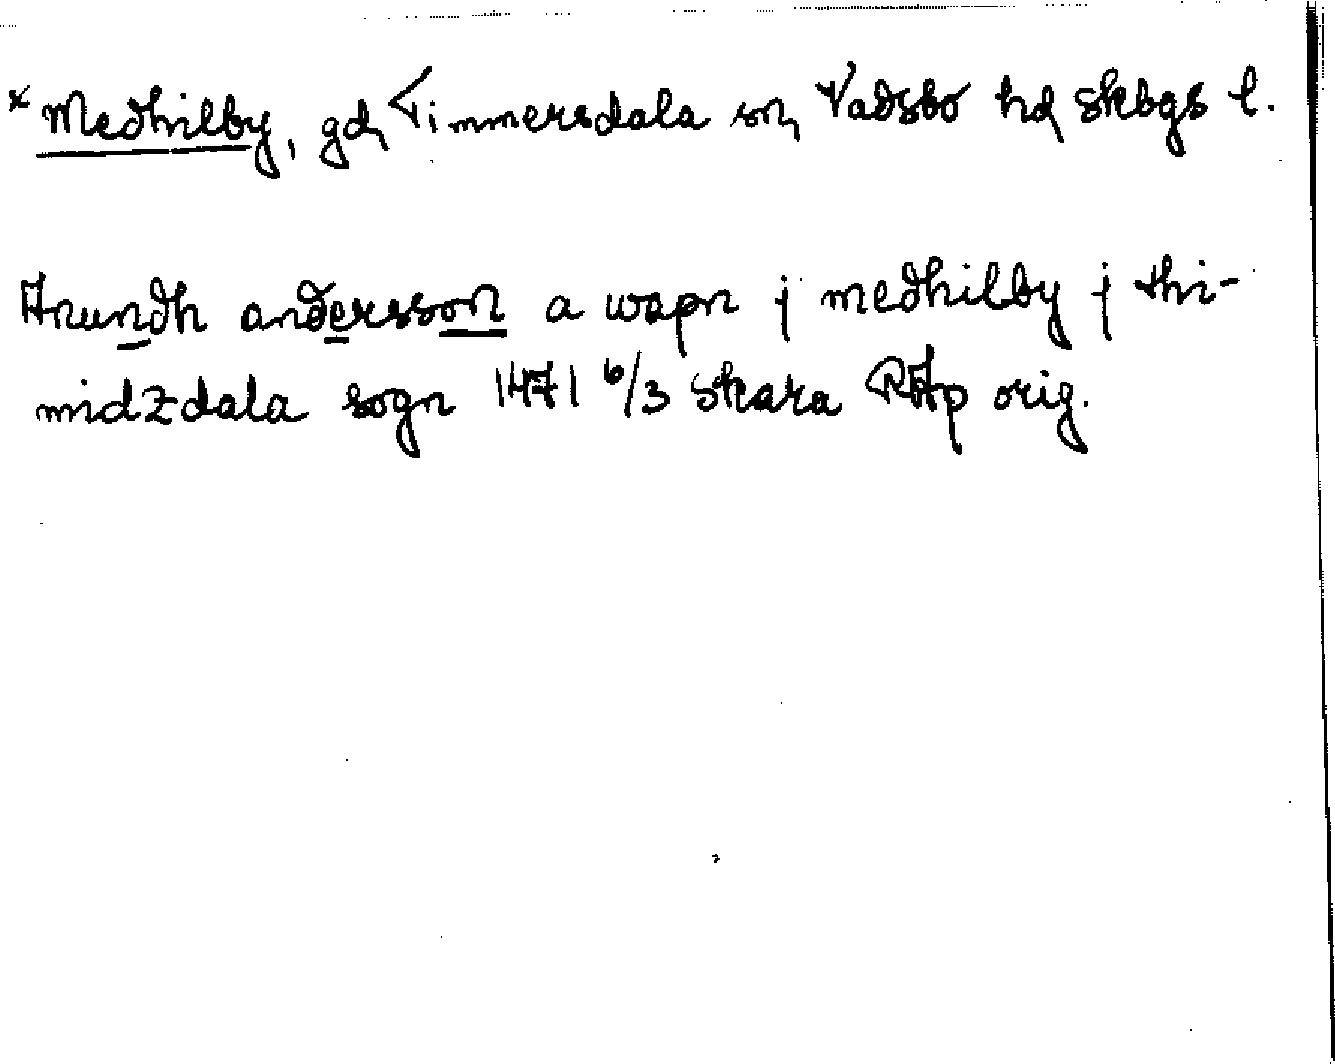 × Medhilby, gd, Timmersdala sn, Vadsbo hd Skbgs l.
Anundh andersson a wapn j medhilby j thi-
midzdala sogn 1471 6/3 Skara RAp orig.